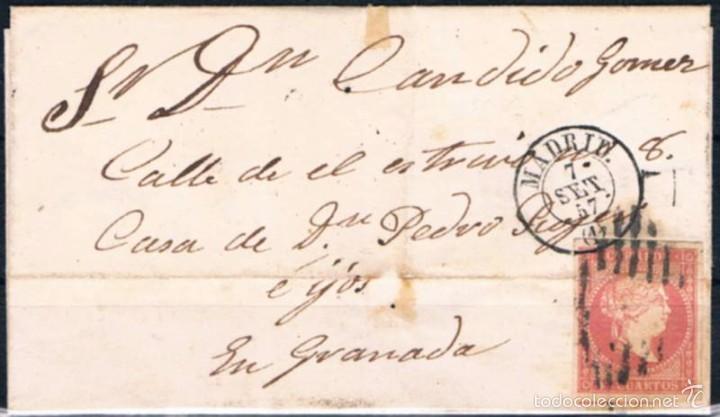 Sr Dn Candido Gomez
Calle de el estrivo nº 8.
Casa de Dn Pedro
e ijos
En Granada
MADRID.
7
SET
57
(1)
CUARTOS
todocoleccion